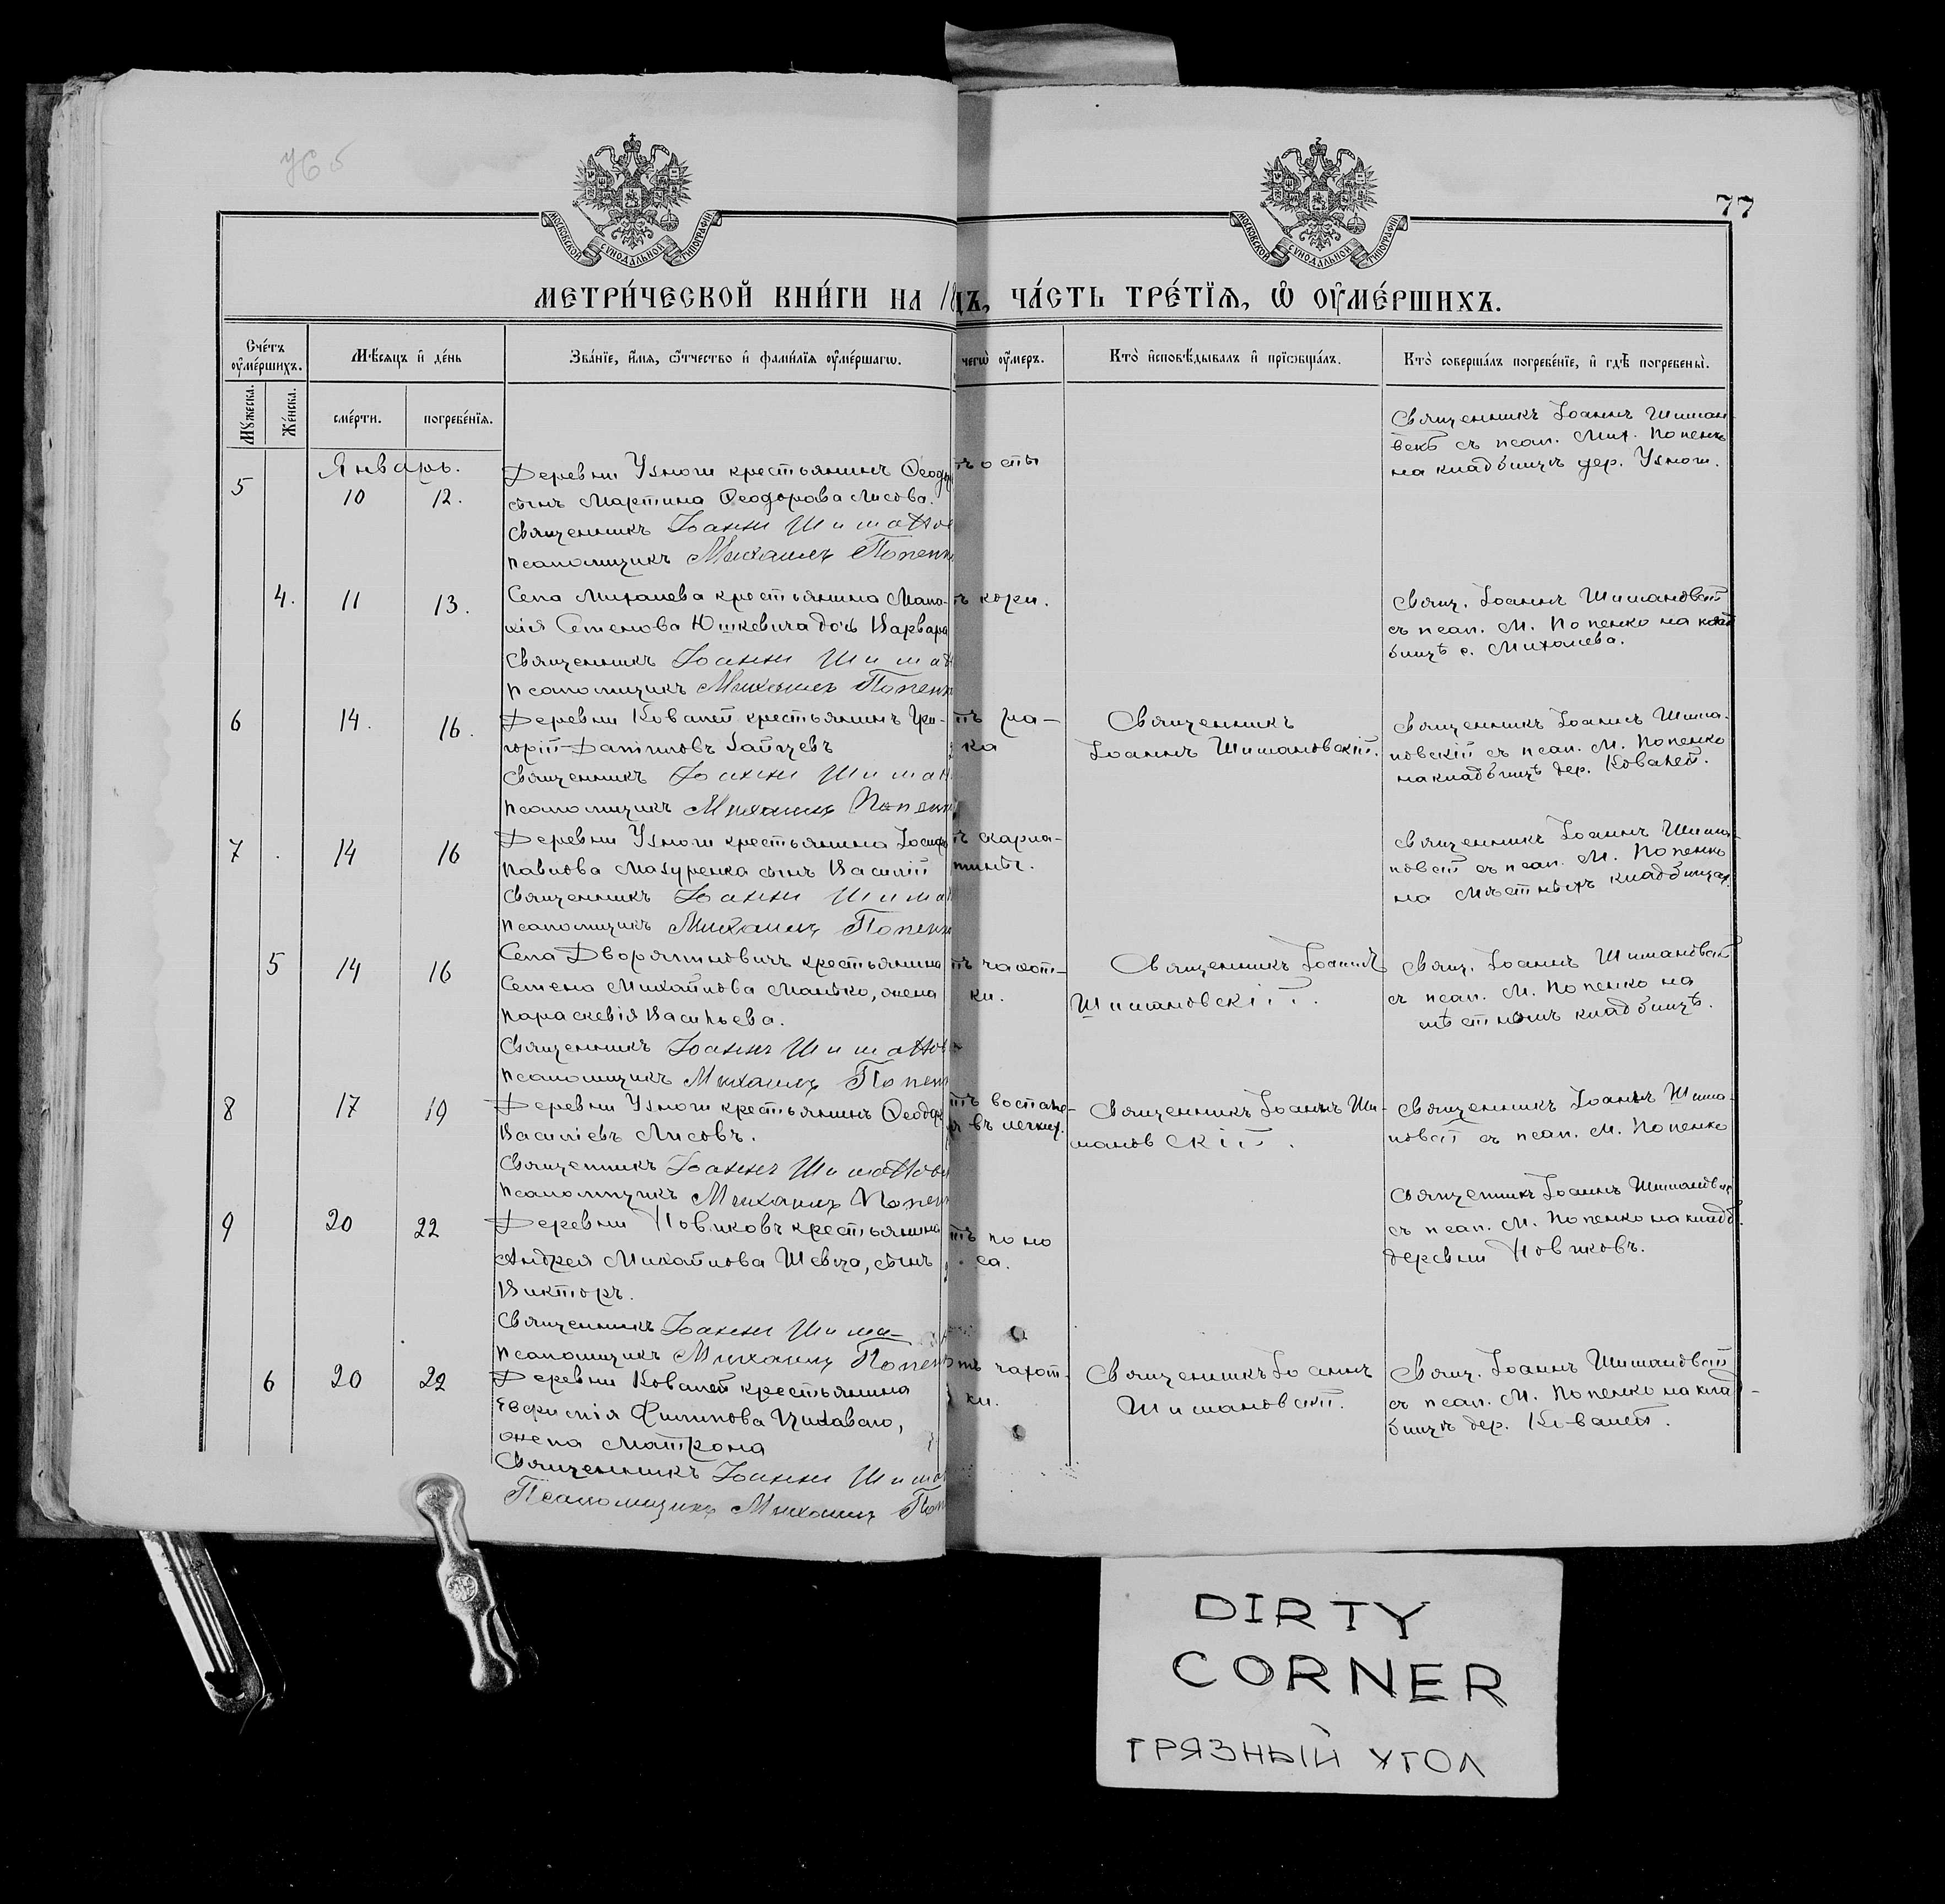 77
МОСКОВСКОЙ СУНОДАЛЬНОЙ ТИПОГРАФІИ
МОСКОВСКОЙ СУНОДАЛЬНОЙ ТИПОГРАФІИ
МЕТРИ́ЧЕСКОЙ КНИ́ГИ НА 18
ДЪ, ЧА́СТЬ ТРЕ́ТІѦ, Ѡ ОУ҆МЕ́РШИХЪ.
Сче́тъ оу҆ме́ршихъ.
Мѣ́сяцъ и҆ де́нь
Зва́нїе, и҆́мя, ѻ҆́тчество и҆ фами́лїя оу҆ме́ршагѡ.
чегѡ̀ оу҆́меръ.
Кто̀ и҆сповѣ́дывалъ и҆ прїѡбща́лъ.
Кто̀ соверша́лъ погребе́нїе, и҆ гдѣ̀ погребены̀.
Мꙋ́жеска.
Же́нска.
сме́рти.
погребе́нїя.
Январь.
5
10
12.
Деревни Узнош крестьянинъ Ѳеод
сынъ Мартина Ѳеодорова Лисова.
Священникъ Іоаннъ Шиманов
Псаломщикъ Михаилъ Попенк
ъ оспы
Священникъ Іоаннъ Шиман
вскій съ псал. Мих. Попенко
на кладбищѣ дер. Узнош.
4.
11
13.
Села Михалева крестьянина Мало-
хія Семенова Юшкевича дочь Варвара
Священникъ Іоаннъ Шиман
Псаломщикъ Михаилъ Попенк
ъ кори.
Свящ. Іоаннъ Шимановскій
съ псал. М. Попенко на клад
бищѣ с. Михалева.
6
14.
16.
Деревни Ковалей крестьянинъ Гри-
горій Даніиловъ Зайцевъ
Священникъ Іоаннъ Шиман
Псаломщикъ Михаилъ Попенк
тъ ра-
ка
Священникъ
Іоаннъ Шимановскій.
Священникъ Іоаннъ Шима-
новскій съ псал. М. Попенко
на кладбищѣ дер. Ковалей.
7
14
16
Деревни Узнош крестьянина Іосифа
Павлова Мазуренка сынъ Василій
Священникъ Іоаннъ Шиман
Псаломщикъ Михаилъ Попенк
ъ скарла-
тины.
Священникъ Іоаннъ Шима-
новскій съ псал. М. Попенко
на мѣстныхъ кладбищах.
5
14
16
Села Дворяниновичъ крестьянина
Семена Михайлова Манько, жена
Параскевія Васильева.
Священникъ Іоаннъ Шиманов
Псаломщикъ Михаилъ Попенк
тъ чахот-
ки.
Священникъ Іоаннъ
Шимановскій.
Свящ. Іоаннъ Шимановскій
съ псал. М. Попенко на
мѣстномъ кладбищѣ.
8
17
19
Деревни Узнош крестьянинъ Ѳеодор
Василіевъ Лисовъ.
Священникъ Іоаннъ Шиманов
Псаломщикъ Михаилъ Попен
тъ воспале-
въ легких.
Священникъ Іоаннъ Ши-
мановскій.
Священникъ Іоаннъ Шима-
новскій съ псал. М. Попенко
9
20
22
Деревни Новиковъ крестьянина
Андрея Михайлова Шевца, сынъ
Викторъ.
Священникъ Іоаннъ Шима-
Псаломщикъ Михаилъ Попен
тъ поно
са.
Священникъ Іоаннъ Шимановск
съ псал. М. Попенко на кладб.
деревни Новиковъ.
6
20
22
Деревни Ковалей крестьянина
Филипова
жена Матрона
Священникъ Іоаннъ Шиман
Псаломщикъ Михаилъ Поп
тъ чахот-
ки.
Священникъ Іоаннъ
Шимановскій.
Свящ. Іоаннъ Шимановскій
съ псал. М. Попенко на клад-
бищѣ дер. Ковалей.
DIRTY
CORNER
ГРЯЗНЫЙ УГОЛ